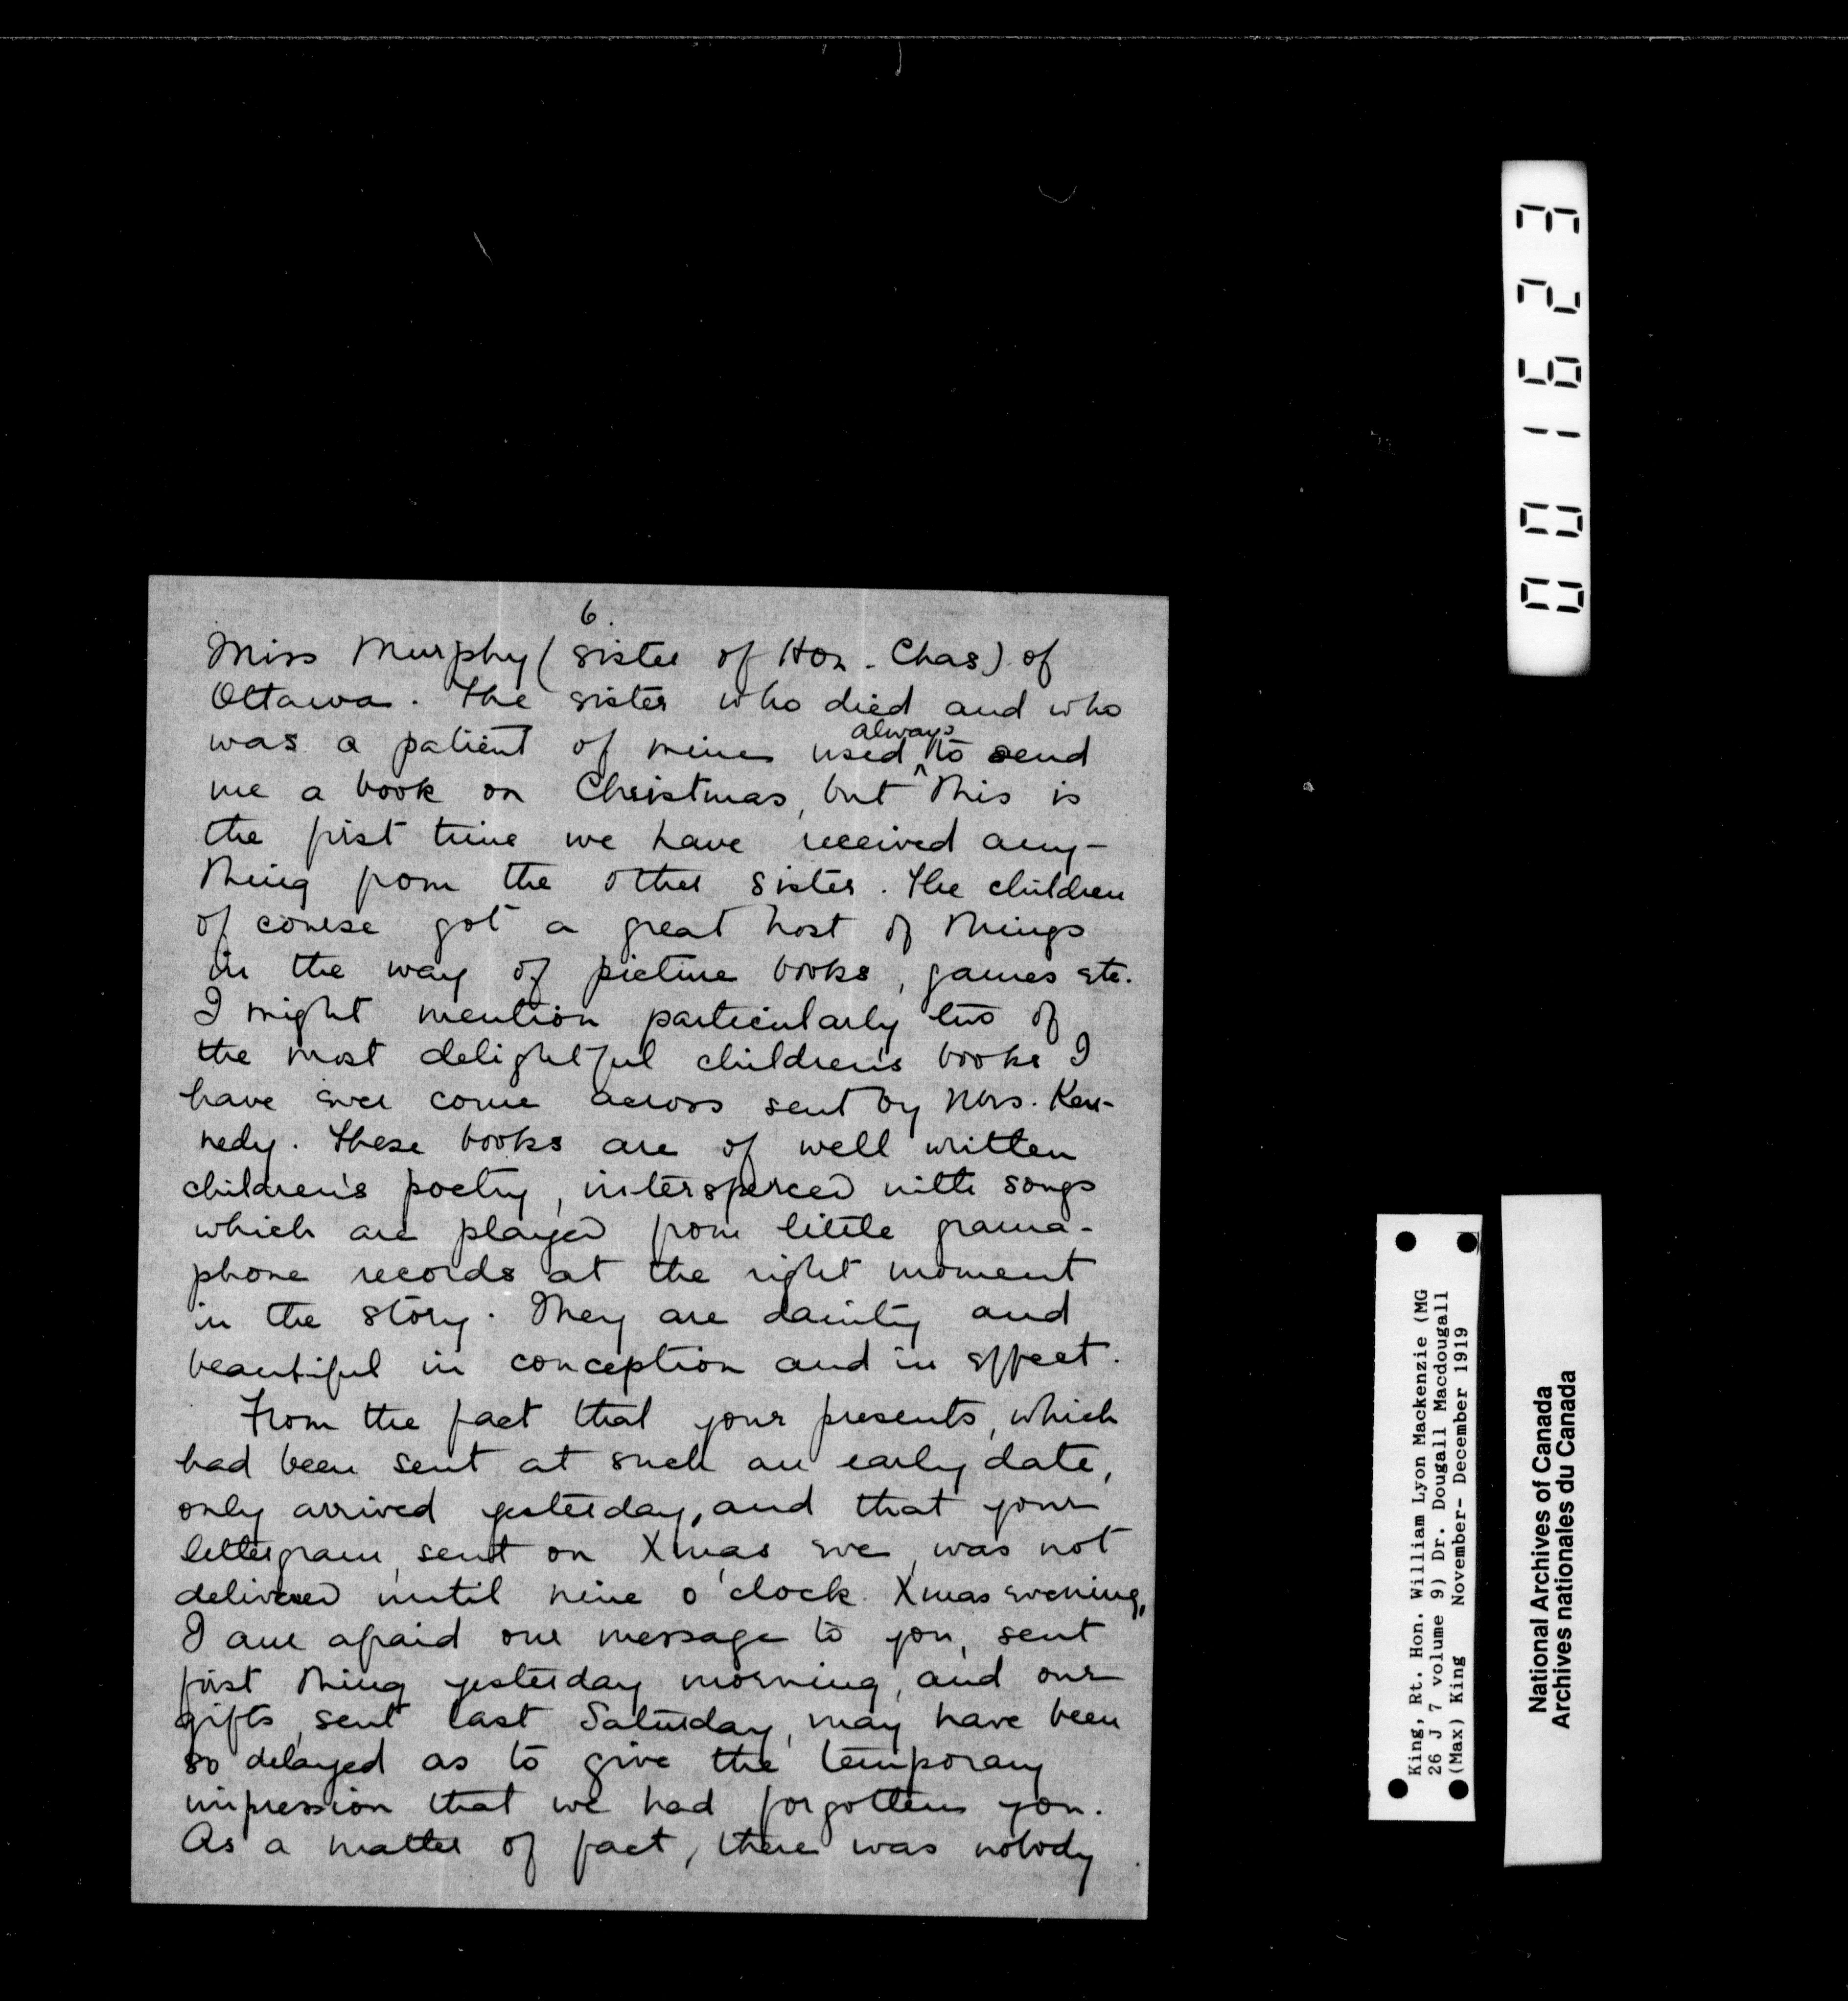 6.
Miss Murphy (sister of Hon. Chas) of
Ottawa. The sister who died and who
was a patient of mine used always to send
me a book on Christmas, but this is
the first time we have received any-
thing from the other sister. The children
of course got a great host of things
in the way of picture books, games etc.
I might mention particularly two of
the most delightful children's books I
have ever come across sent by Mrs. Ken-
nedy. These books are of well written
children's poetry, interspersed with songs
which are played from little grama-
phone records at the right moment
in the story. They are dainty and
beautiful in conception and in effect.
From the fact that your presents, which
had been sent at such an early date,
only arrived yesterday, and that your
lettergram, sent on Xmas eve, was not
delivered until nine o'clock Xmas evening,
I am afraid our message to you, sent
first thing yesterday morning, and our
gifts, sent last Saturday, may have been
so delayed as to give the temporary
impression that we had forgotten you.
As a matter of fact, there was nobody
001623
King, Rt. Hon. William Lyon Mackenzie (MG
26 J 7 volume 9) Dr. Dougall Macdougall
(Max) King November- December 1919
National Archives of Canada
Archives nationales du Canada